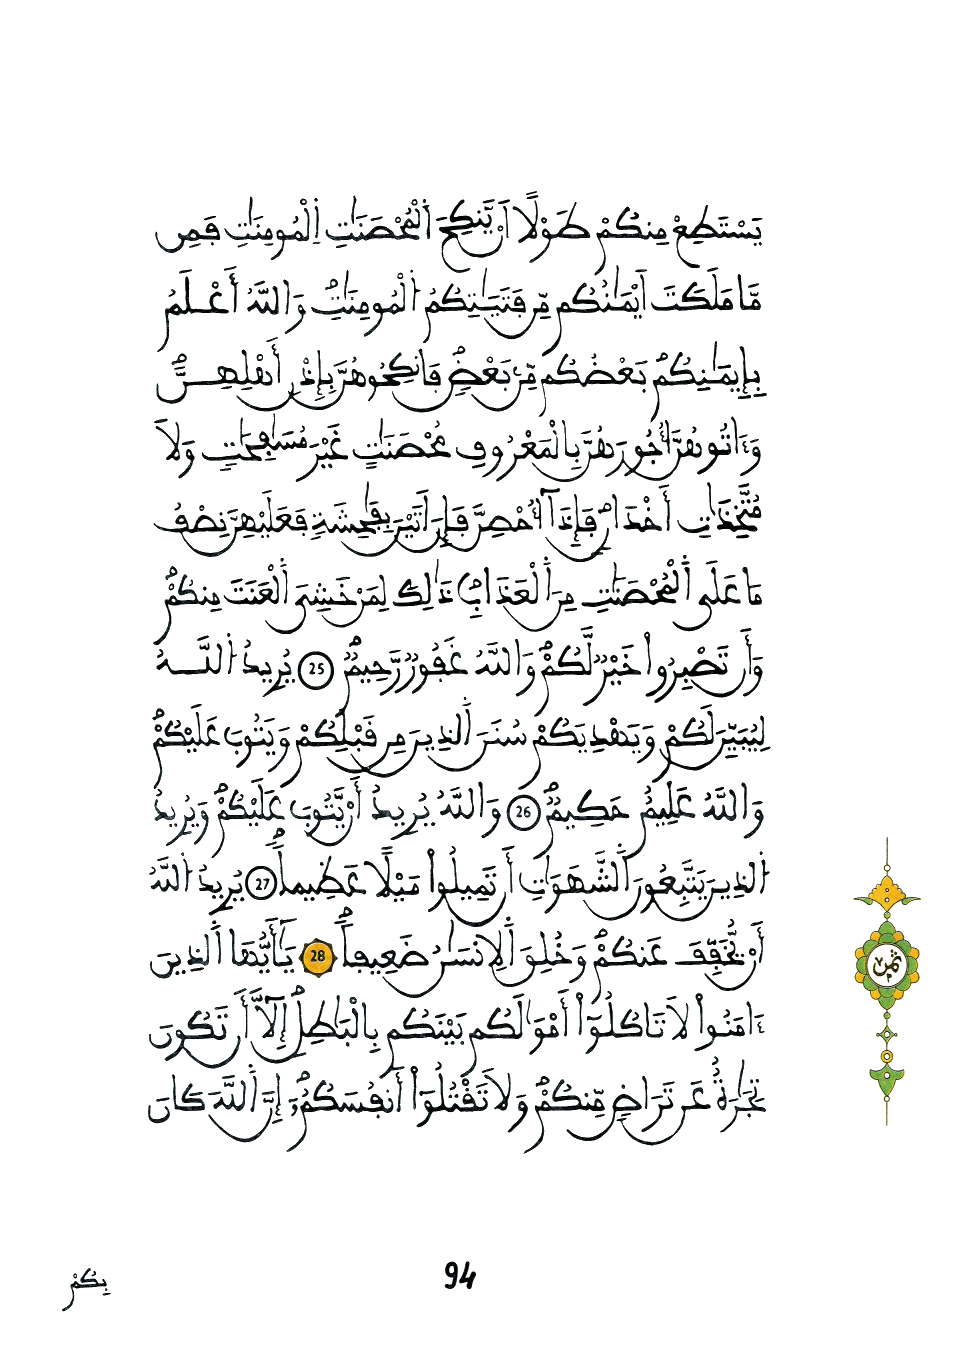 يَسْتَطِعْ مِنكُمْ طَوْلًا اَنْ يَّنكِحَ اَ۬لْمُحْصَنَٰتِ اِ۬لْمُومِنَٰتِ فَمِن
مَّا مَلَكَتَ اَيْمَٰنُكُم مِّن فَتَيَٰتِكُمُ اُ۬لْمُومِنَٰتِۖ وَاللَّهُ أَعْلَمُ
بِإِيمَٰنِكُمۖ بَعْضُكُم مِّنۢ بَعْضٖۖ فَانكِحُوهُنَّ بِإِذْنِ أَهْلِهِنَّۖ
وَءَاتُوهُنَّ أُجُورَهُنَّ بِالْمَعْرُوفِ مُحْصَنَٰتٍ غَيْرَ مُسَٰفِحَٰتٖ وَلَا
مُتَّخِذَٰتِ أَخْدَانٖۖ فَإِذَآ أُحْصِنَّ فَإِنَ اَتَيْنَ بِفَٰحِشَةٖ فَعَلَيْهِنَّ نِصْفُ
مَا عَلَى اَ۬لْمُحْصَنَٰتِ مِنَ اَ۬لْعَذَابِۖ ذَٰلِكَ لِمَنْ خَشِيَ اَ۬لْعَنَتَ مِنكُمْۖ
وَأَن تَصْبِرُواْ خَيْرٞ لَّكُمْۖ وَاللَّهُ غَفُورٞ رَّحِيمٞۖ 25 يُرِيدُ اُ۬للَّهُ
لِيُبَيِّنَ لَكُمْ وَيَهْدِيَكُمْ سُنَنَ اَ۬لذِينَ مِن قَبْلِكُمْ وَيَتُوبَ عَلَيْكُمْۖ
وَاللَّهُ عَلِيمٌ حَكِيمٞۖ 26 وَاللَّهُ يُرِيدُ أَنْ يَّتُوبَ عَلَيْكُمْۖ وَيُرِيدُ
اُ۬لذِينَ يَتَّبِعُونَ اَ۬لشَّهَوَٰتِ أَن تَمِيلُواْ مَيْلًا عَظِيماٗۖ 27 يُرِيدُ اُ۬للَّهُ
أَنْ يُّخَفِّفَ عَنكُمْۖ وَخُلِقَ اَ۬لِانسَٰنُ ضَعِيفاٗۖ 28 يَٰٓأَيُّهَا اَ۬لذِينَ
ءَامَنُواْ لَا تَاكُلُوٓاْ أَمْوَٰلَكُم بَيْنَكُم بِالْبَٰطِلِۖ إِلَّآ أَن تَكُونَ
تِجَٰرَةٌ عَن تَرَاضٖ مِّنكُمْۖ وَلَا تَقْتُلُوٓاْ أَنفُسَكُمُۥٓۖ إِنَّ اَ۬للَّهَ كَانَ
ثمن
94
بِكُمْ